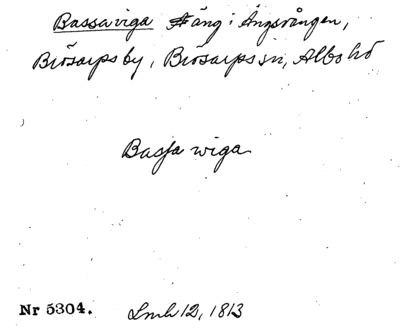 Bassaviga Äng i Ängsvången,
Brösarps by, Brösarps sn, Albo hd
Bassa wiga
Nr 5304. Lmh 12, 1813